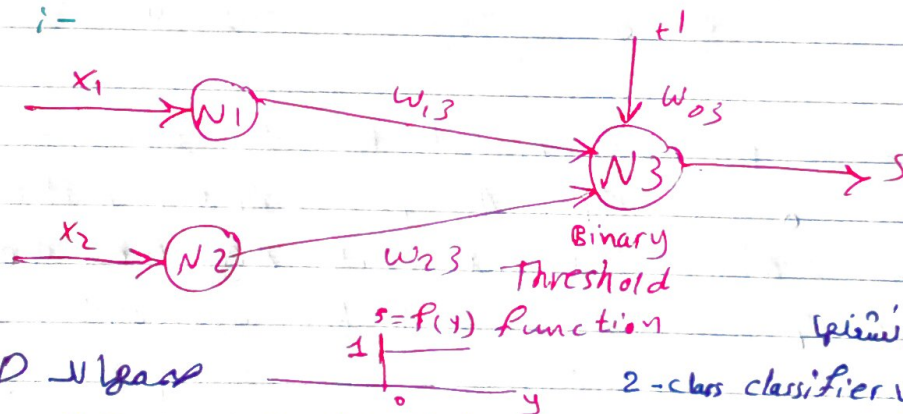 :-
+1
X1 N1 W13 W03
N3 S
X2 N2 W23
Binary
Threshold
s=f(y) function
1
0 y
2-class classifier